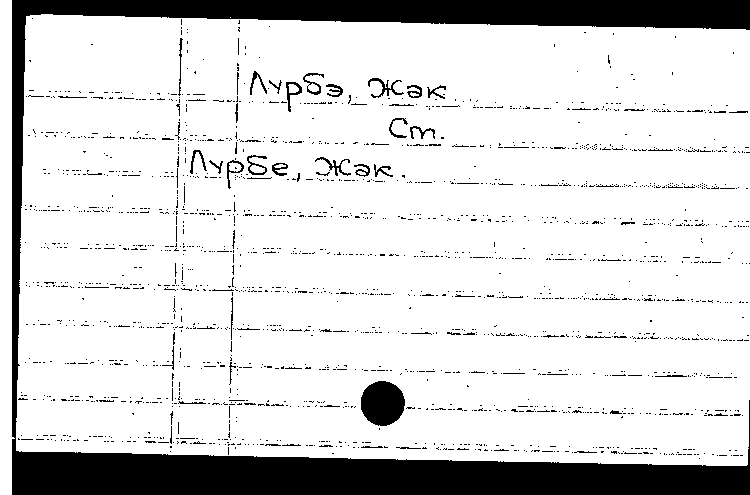 Лурбэ, Жак
Ст.
Лурбе, Жак.